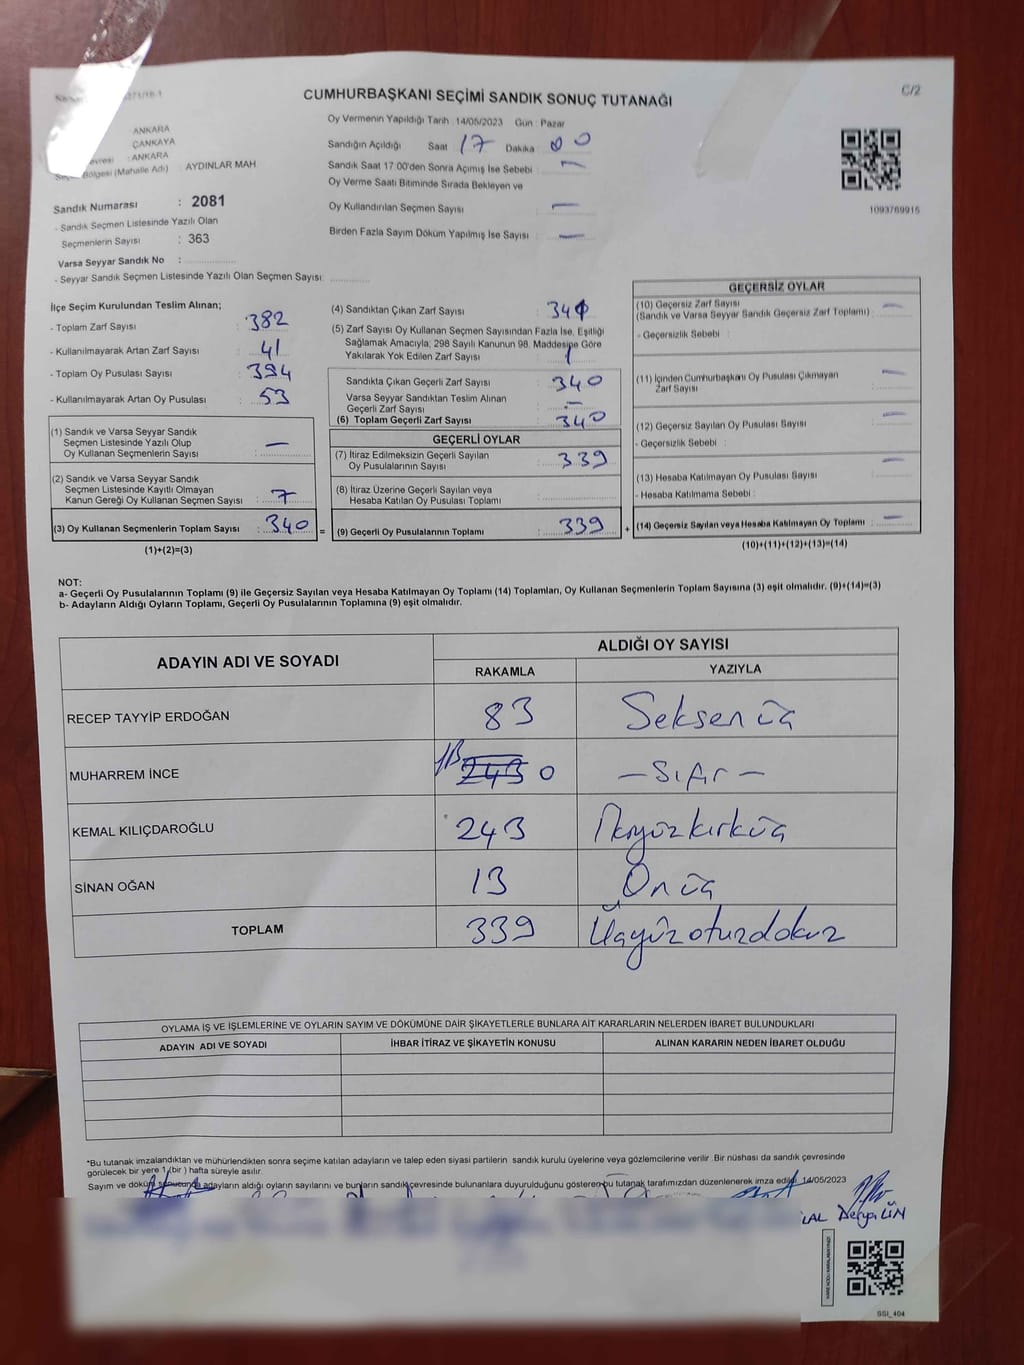 CUMHURBAŞKANI SEÇİMİ SANDIK SONUÇ TUTANAĞI
C/2
Oy Vermenin Yapıldığı Tarih : 14/05/2023 Gün : Pazar
ANKARA
ÇANKAYA
: ANKARA
Seçim Bölgesi (Mahalle Adı) AYDINLAR MAH
Sandığın Açıldığı Saat 17 Dakika : 00
Sandık Saat 17.00'den Sonra Açımış İse Sebebi : —
Oy Verme Saati Bitiminde Sırada Bekleyen ve
Oy Kullandırılan Seçmen Sayısı : —
Birden Fazla Sayım Döküm Yapılmış İse Sayısı : —
1093769915
Sandık Numarası : 2081
- Sandık Seçmen Listesinde Yazılı Olan
Seçmenlerin Sayısı : 363
Varsa Seyyar Sandık No :
- Seyyar Sandık Seçmen Listesinde Yazılı Olan Seçmen Sayısı:
İlçe Seçim Kurulundan Teslim Alınan;
- Toplam Zarf Sayısı : 382
- Kullanılmayarak Artan Zarf Sayısı : 41
- Toplam Oy Pusulası Sayısı : 394
- Kullanılmayarak Artan Oy Pusulası : 53
(1) Sandık ve Varsa Seyyar Sandık
Seçmen Listesinde Yazılı Olup
Oy Kullanan Seçmenlerin Sayısı : —
(2) Sandık ve Varsa Seyyar Sandık
Seçmen Listesinde Kayıtlı Olmayan
Kanun Gereği Oy Kullanan Seçmen Sayısı : 7
(3) Oy Kullanan Seçmenlerin Toplam Sayısı : 340 =
(1)+(2)=(3)
(4) Sandıktan Çıkan Zarf Sayısı :
(5) Zarf Sayısı Oy Kullanan Seçmen Sayısından Fazla İse, Eşitliği
Sağlamak Amacıyla; 298 Sayılı Kanunun 98. Maddesine Göre
Yakılarak Yok Edilen Zarf Sayısı : 1
Sandıkta Çıkan Geçerli Zarf Sayısı : 340
Varsa Seyyar Sandıktan Teslim Alınan
Geçerli Zarf Sayısı : —
(6) Toplam Geçerli Zarf Sayısı : 340
GEÇERLİ OYLAR
(7) İtiraz Edilmeksizin Geçerli Sayılan
Oy Pusulalarının Sayısı : 339
(8) İtiraz Üzerine Geçerli Sayılan veya
Hesaba Katılan Oy Pusulası Toplamı :
(9) Geçerli Oy Pusulalarının Toplamı : 339 +
GEÇERSİZ OYLAR
(10) Geçersiz Zarf Sayısı
(Sandık ve Varsa Seyyar Sandık Geçersiz Zarf Toplamı) : —
- Geçersizlik Sebebi :
(11) İçinden Cumhurbaşkanı Oy Pusulası Çıkmayan
Zarf Sayısı : —
(12) Geçersiz Sayılan Oy Pusulası Sayısı : —
- Geçersizlik Sebebi :
(13) Hesaba Katılmayan Oy Pusulası Sayısı : —
- Hesaba Katılmama Sebebi :
(14) Geçersiz Sayılan veya Hesaba Katılmayan Oy Toplamı : —
(10)+(11)+(12)+(13)=(14)
NOT:
a- Geçerli Oy Pusulalarının Toplamı (9) ile Geçersiz Sayılan veya Hesaba Katılmayan Oy Toplamı (14) Toplamları, Oy Kullanan Seçmenlerin Toplam Sayısına (3) eşit olmalıdır. (9)+(14)=(3)
b- Adayların Aldığı Oyların Toplamı, Geçerli Oy Pusulalarının Toplamına (9) eşit olmalıdır.
ADAYIN ADI VE SOYADI ALDIĞI OY SAYISI
RAKAMLA YAZIYLA
RECEP TAYYİP ERDOĞAN 83 Seksen üç
MUHARREM İNCE 0 — Sıfır —
KEMAL KILIÇDAROĞLU 243 İkiyüzkırküç
SİNAN OĞAN 13 On üç
TOPLAM 339 Üçyüzotuzdokuz
OYLAMA İŞ VE İŞLEMLERİNE VE OYLARIN SAYIM VE DÖKÜMÜNE DAİR ŞİKAYETLERLE BUNLARA AİT KARARLARIN NELERDEN İBARET BULUNDUKLARI
ADAYIN ADI VE SOYADI İHBAR İTİRAZ VE ŞİKAYETİN KONUSU ALINAN KARARIN NEDEN İBARET OLDUĞU
*Bu tutanak imzalandıktan ve mühürlendikten sonra seçime katılan adayların ve talep eden siyasi partilerin sandık kurulu üyelerine veya gözlemcilerine verilir. Bir nüshası da sandık çevresinde
görülecek bir yere 1 (bir) hafta süreyle asılır.
Sayım ve döküm sonucunda adayların aldığı oyların sayılarını ve bunların sandık çevresinde bulunanlara duyurulduğunu gösteren bu tutanak tarafımızdan düzenlenerek imza edildi. 14/05/2023
Derya
SSI_404